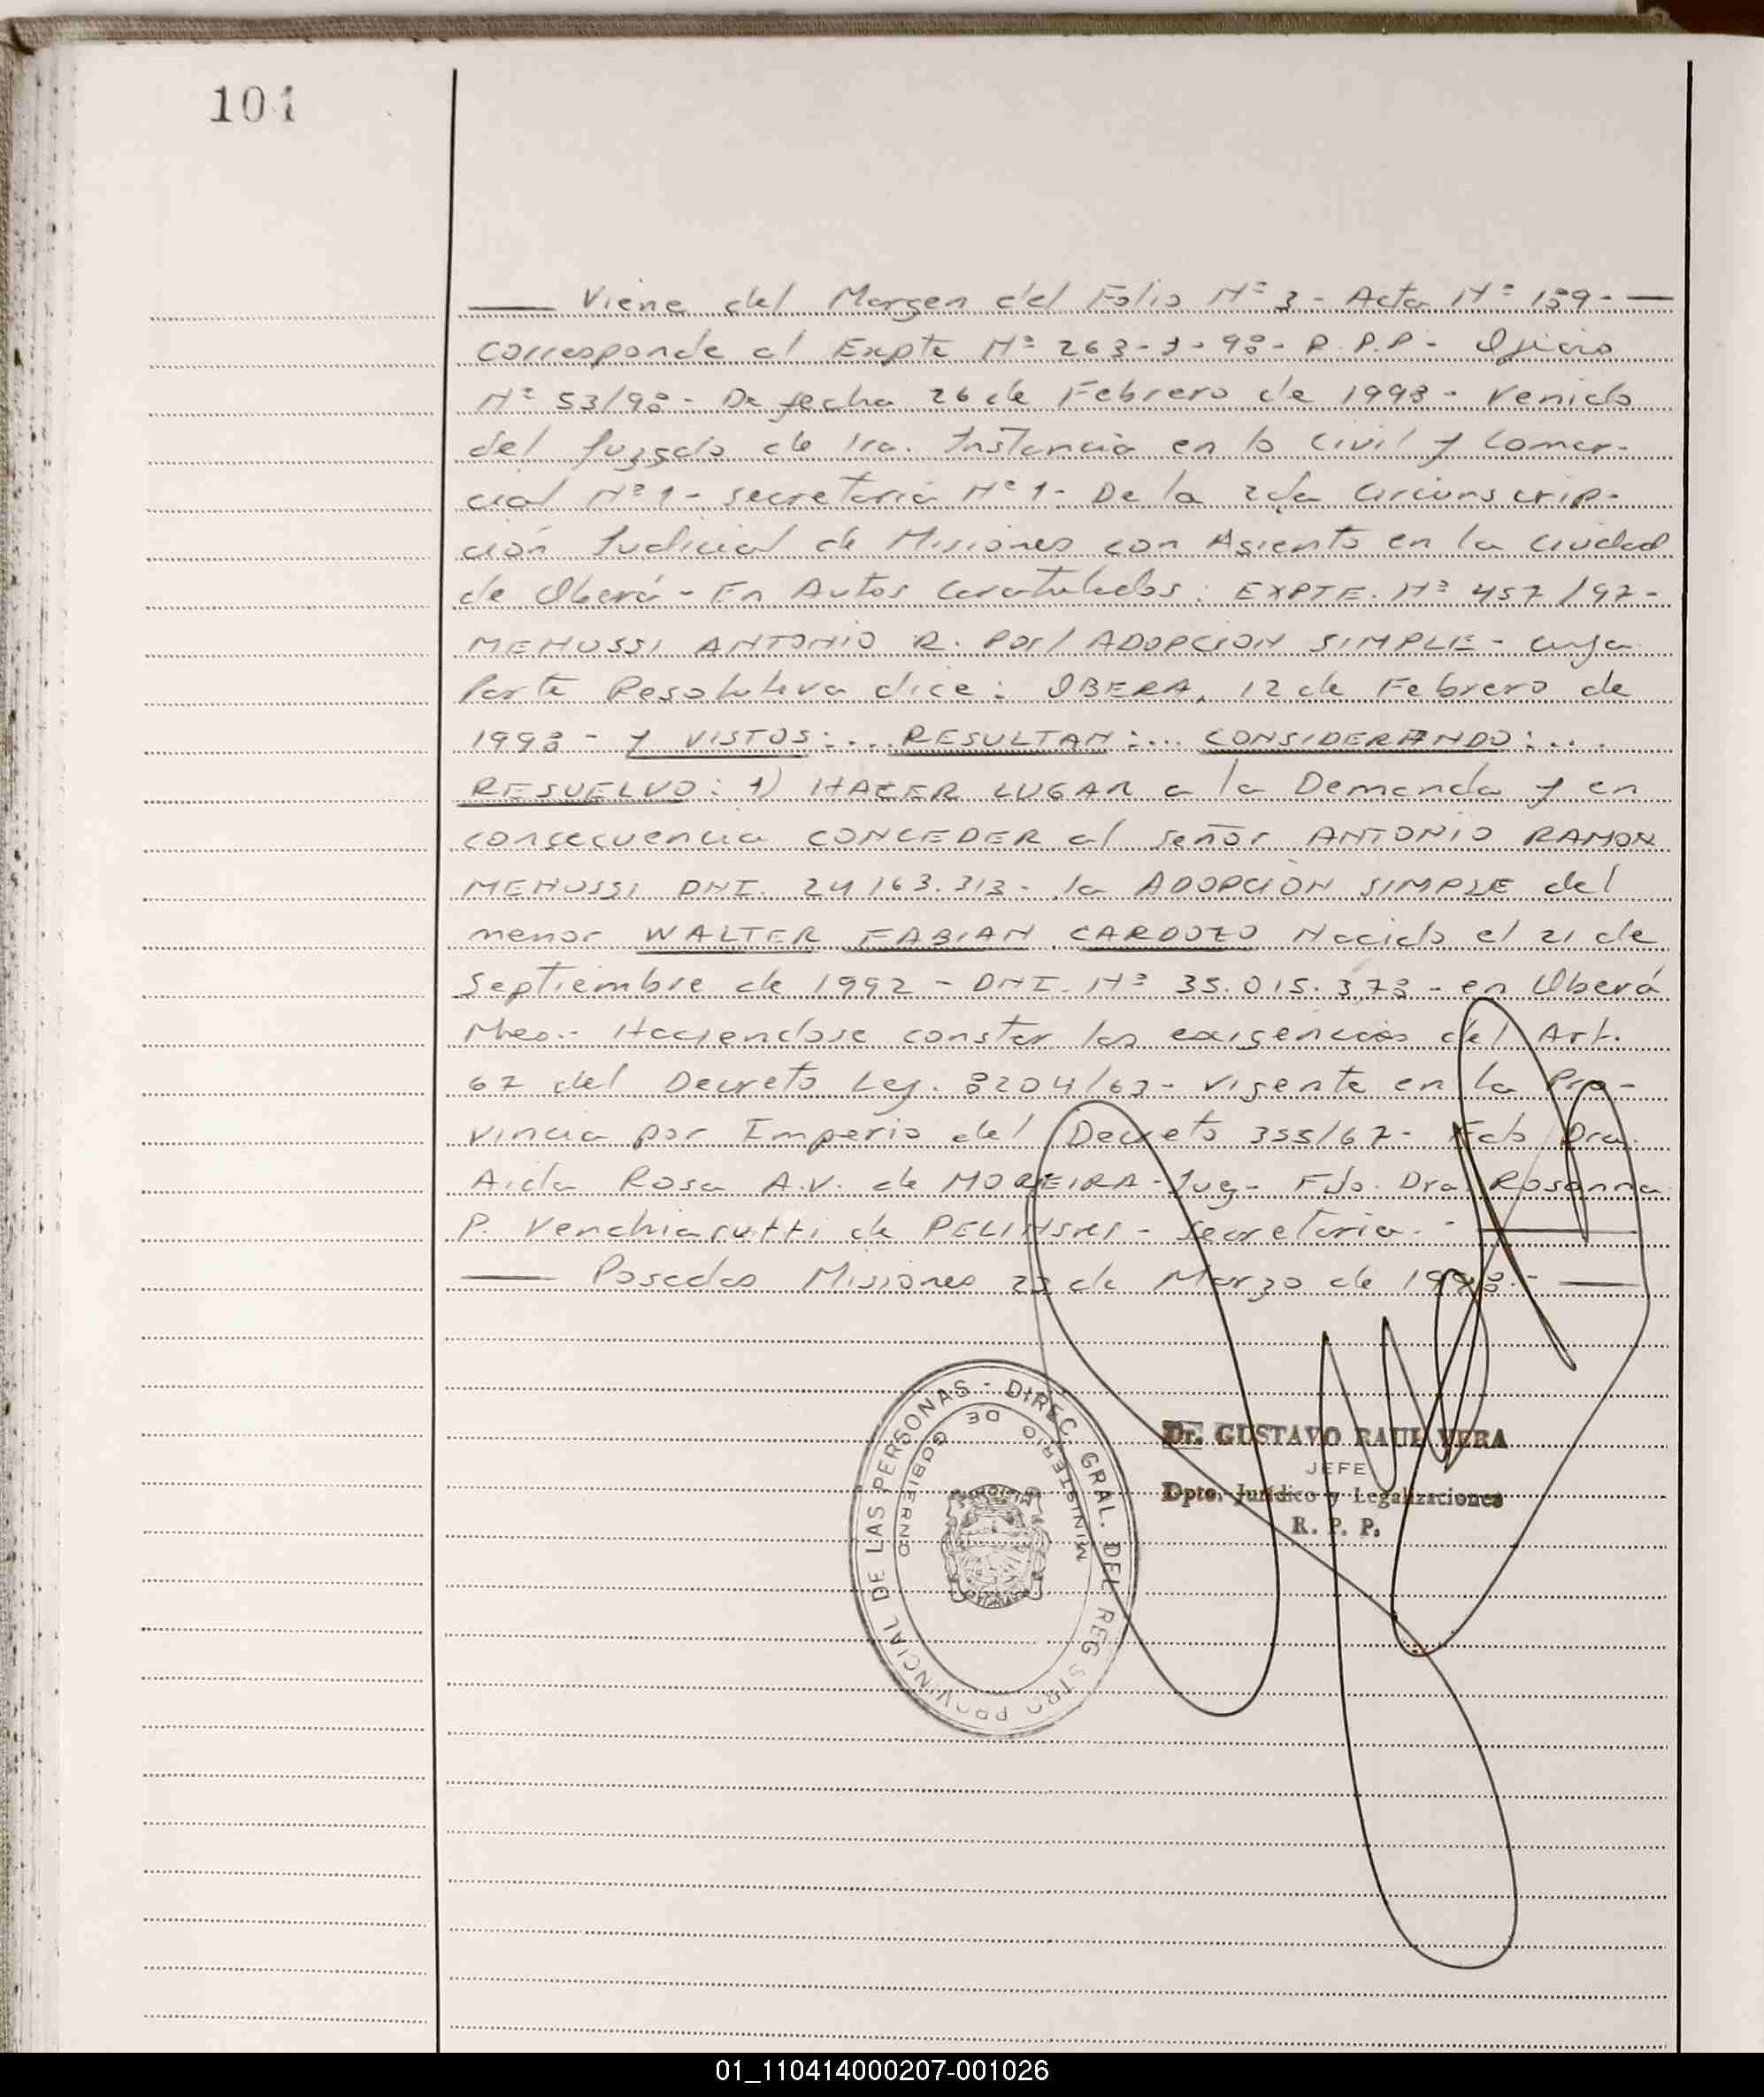 101
Viene del Margen del Folio Nº 3 - Acta Nº 189 -
Corresponde al Expte Nº 263 - - 98 - R.P.P. - Oficio
Nº 53/98 - De fecha 26 de Febrero de 1998 - Venido
del Juzgado de 1ra. Instancia en lo Civil y Comer-
cial Nº 1 - Secretaria Nº 1 - De la 2da Circunscrip-
ción Judicial de Misiones con Asiento en la Ciudad
de Oberá - En Autos Caratulados: EXPTE. Nº 457/97 -
MENUSSI ANTONIO R. Por/ ADOPCION SIMPLE - cuya
Parte Resolutiva dice: OBERA, 12 de Febrero de
1998 - Y VISTOS:... RESULTAN:... CONSIDERANDO:...
RESUELVO: 1) HACER LUGAR a la Demanda y en
consecuencia CONCEDER al señor ANTONIO RAMON
MENUSSI DNI. 24163.313 - la ADOPCION SIMPLE del
menor WALTER FABIAN CARDOZO Nacido el 21 de
Septiembre de 1992 - DNI. Nº 35.015.378 - en Oberá
Mnes.- Haciendose constar las exigencias del Art.
67 del Decreto Ley. 8204/63 - vigente en la Pro-
vincia por Imperio del Decreto 355/67 - Fdo Dra.
Aida Rosa A.V. de MOREIRA - Juez - Fdo. Dra. Rosanna
P. Venchiarutti de - Secretaria. -
Posadas Misiones 23 de Marzo de 1998.-
DIREC. GRAL. DEL REGISTRO PROVINCIAL DE LAS PERSONAS -
MINISTERIO DE GOBIERNO
Dr. GUSTAVO RAUL VERA
JEFE
Dpto. Jurídico y Legalizaciones
R. P. P.
01_110414000207-001026